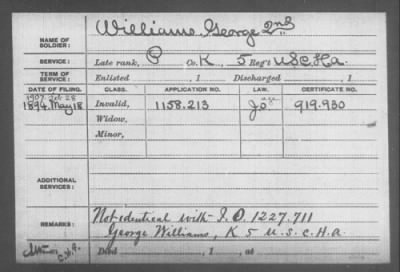 NAME OF SOLDIER: Williams, George 2nd
SERVICE: Late rank, P Co. K, 5 Reg't U.S.C.H.A.
TERM OF SERVICE: Enlisted , 1 Discharged , 1
DATE OF FILING. CLASS. APPLICATION NO. LAW. CERTIFICATE NO.
1907. Feb 28
1894. May 18 Invalid, 1158.213 919.930
Widow,
Minor,
ADDITIONAL SERVICES:
REMARKS: Not identical with I.O. 1227.711
George Williams, K 5 U.S.C.H.A.
Died , 1 , at